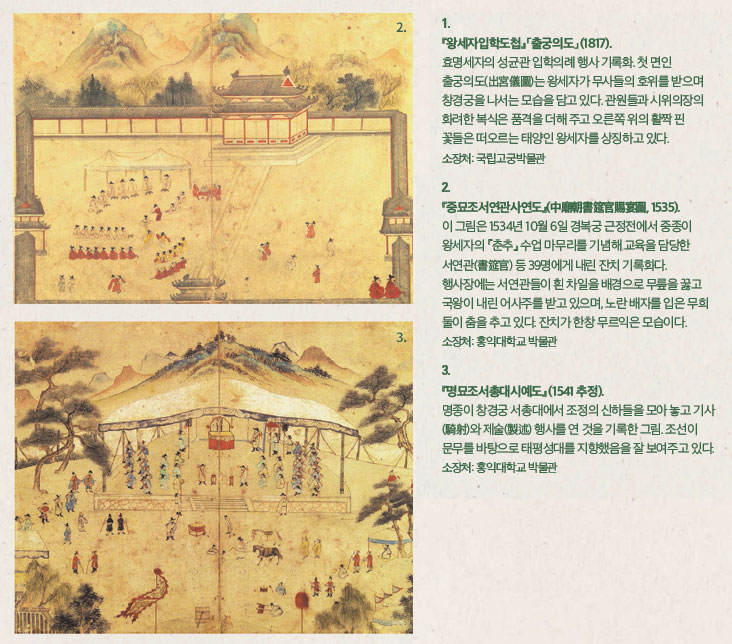 2.
3.
1.
『왕세자입학도첩』「출궁의도」(1817).
효명세자의 성균관 입학의례 행사 기록화. 첫 면인
출궁의도(出宮儀圖)는 왕세자가 무사들의 호위를 받으며
창경궁을 나서는 모습을 담고 있다. 관원들과 시위의장의
화려한 복식은 품격을 더해 주고 오른쪽 위의 활짝 핀
꽃들은 떠오르는 태양인 왕세자를 상징하고 있다.
소장처: 국립고궁박물관
2.
『중묘조서연관사연도』(中廟朝書筵官賜宴圖, 1535).
이 그림은 1534년 10월 6일 경복궁 근정전에서 중종이
왕세자의 『춘추』 수업 마무리를 기념해 교육을 담당한
서연관(書筵官) 등 39명에게 내린 잔치 기록화다.
행사장에는 서연관들이 흰 차일을 배경으로 무릎을 꿇고
국왕이 내린 어사주를 받고 있으며, 노란 배자를 입은 무희
둘이 춤을 추고 있다. 잔치가 한창 무르익은 모습이다.
소장처: 홍익대학교 박물관
3.
『명묘조서총대시예도』(1541 추정).
명종이 창경궁 서총대에서 조정의 신하들을 모아 놓고 기사
(騎射)와 제술(製述) 행사를 연 것을 기록한 그림. 조선이
문무를 바탕으로 태평성대를 지향했음을 잘 보여주고 있다.
소장처: 홍익대학교 박물관